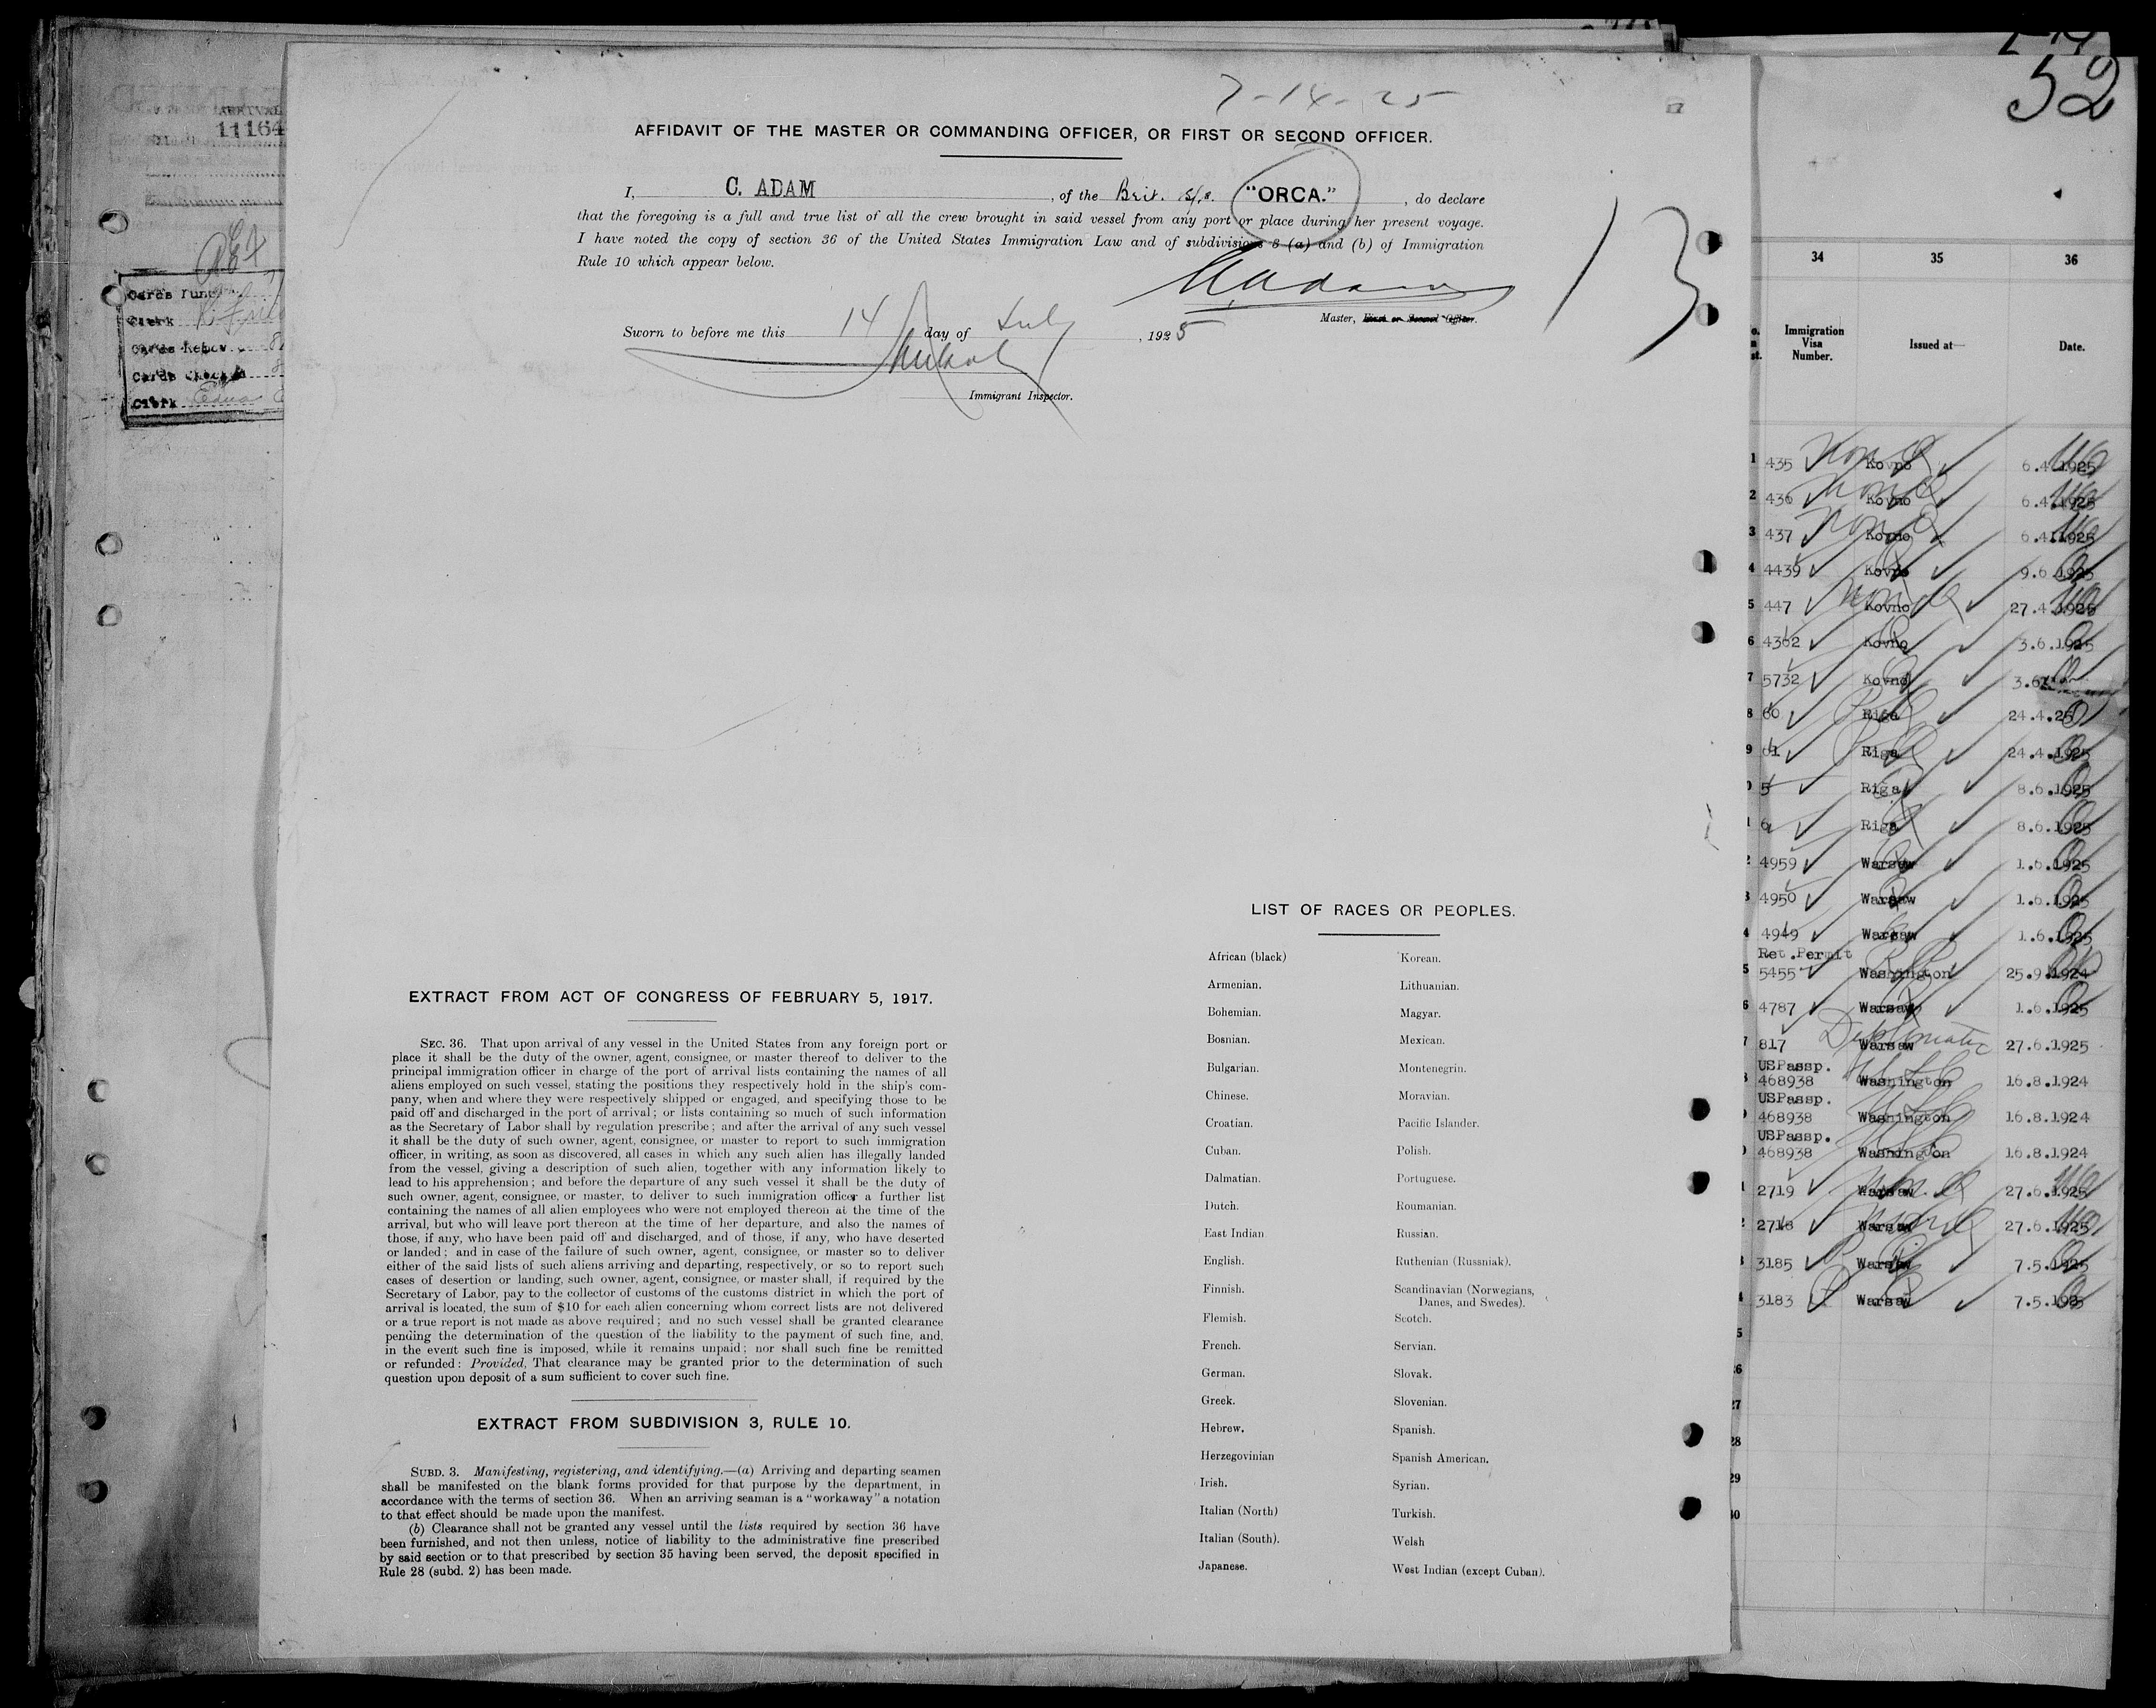 7-14-25
AFFIDAVIT OF THE MASTER OR COMMANDING OFFICER, OR FIRST OR SECOND OFFICER.
I, C. ADAM, of the Brit. S/s. "ORCA.", do declare
that the foregoing is a full and true list of all the crew brought in said vessel from any port or place during her present voyage.
I have noted the copy of section 36 of the United States Immigration Law and of subdivisions 8 (a) and (b) of Immigration
Rule 10 which appear below.
Master, First or Second Officer.
Sworn to before me this 14 day of July, 1925
Immigrant Inspector.
13
EXTRACT FROM ACT OF CONGRESS OF FEBRUARY 5, 1917.
SEC. 36. That upon arrival of any vessel in the United States from any foreign port or
place it shall be the duty of the owner, agent, consignee, or master thereof to deliver to the
principal immigration officer in charge of the port of arrival lists containing the names of all
aliens employed on such vessel, stating the positions they respectively hold in the ship's com-
pany, when and where they were respectively shipped or engaged, and specifying those to be
paid off and discharged in the port of arrival; or lists containing so much of such information
as the Secretary of Labor shall by regulation prescribe; and after the arrival of any such vessel
it shall be the duty of such owner, agent, consignee, or master to report to such immigration
officer, in writing, as soon as discovered, all cases in which any such alien has illegally landed
from the vessel, giving a description of such alien, together with any information likely to
lead to his apprehension; and before the departure of any such vessel it shall be the duty of
such owner, agent, consignee, or master, to deliver to such immigration officer a further list
containing the names of all alien employees who were not employed thereon at the time of the
arrival, but who will leave port thereon at the time of her departure, and also the names of
those, if any, who have been paid off and discharged, and of those, if any, who have deserted
or landed; and in case of the failure of such owner, agent, consignee, or master so to deliver
either of the said lists of such aliens arriving and departing, respectively, or so to report such
cases of desertion or landing, such owner, agent, consignee, or master shall, if required by the
Secretary of Labor, pay to the collector of customs of the customs district in which the port of
arrival is located, the sum of $10 for each alien concerning whom correct lists are not delivered
or a true report is not made as above required; and no such vessel shall be granted clearance
pending the determination of the question of the liability to the payment of such fine, and,
in the event such fine is imposed, while it remains unpaid; nor shall such fine be remitted
or refunded: Provided, That clearance may be granted prior to the determination of such
question upon deposit of a sum sufficient to cover such fine.
EXTRACT FROM SUBDIVISION 3, RULE 10.
SUBD. 3. Manifesting, registering, and identifying.—(a) Arriving and departing seamen
shall be manifested on the blank forms provided for that purpose by the department, in
accordance with the terms of section 36. When an arriving seaman is a "workaway" a notation
to that effect should be made upon the manifest.
(b) Clearance shall not be granted any vessel until the lists required by section 36 have
been furnished, and not then unless, notice of liability to the administrative fine prescribed
by said section or to that prescribed by section 35 having been served, the deposit specified in
Rule 28 (subd. 2) has been made.
LIST OF RACES OR PEOPLES.
African (black) Korean.
Armenian. Lithuanian.
Bohemian. Magyar.
Bosnian. Mexican.
Bulgarian. Montenegrin.
Chinese. Moravian.
Croatian. Pacific Islander.
Cuban. Polish.
Dalmatian. Portuguese.
Dutch. Roumanian.
East Indian Russian.
English. Ruthenian (Russniak).
Finnish. Scandinavian (Norwegians,
Danes, and Swedes).
Flemish. Scotch.
French. Servian.
German. Slovak.
Greek. Slovenian.
Hebrew. Spanish.
Herzegovinian Spanish American.
Irish. Syrian.
Italian (North) Turkish.
Italian (South). Welsh
Japanese. West Indian (except Cuban).
ARRIVAL
11164
Clerk
Clerk Edna
52
34 35 36
Immigration
Visa
Number. Issued at— Date.
1 435 Kovno 6.4.1925
2 436 Kovno 6.4.1925
3 437 Kovno 6.4.1925
4 4439 Kovno 9.6.1925
5 447 Kovno 27.4.1925
6 4362 Kovno 3.6.1925
7 5732 Kovno 3.6
8 60 Riga 24.4.25
9 61 Riga 24.4.1925
0 5 Riga 8.6.1925
1 6 Riga 8.6.1925
2 4959 Warsaw 1.6.1925
3 4950 Warsaw 1.6.1925
4 4949 Warsaw 1.6.1925
Ret.Permit
5 5455 Washington 25.9.1924
6 4787 Warsaw 1.6.1925
Diplomatic
7 817 Warsaw 27.6.1925
USPassp.
468938 Washington 16.8.1924
USPassp.
468938 Washington 16.8.1924
USPassp.
468938 Washington 16.8.1924
1 2719 Warsaw 27.6.1925
2 2718 Warsaw 27.6.1925
3185 Warsaw 7.5.1925
3183 Warsaw 7.5.1925
5
26
27
28
29
30